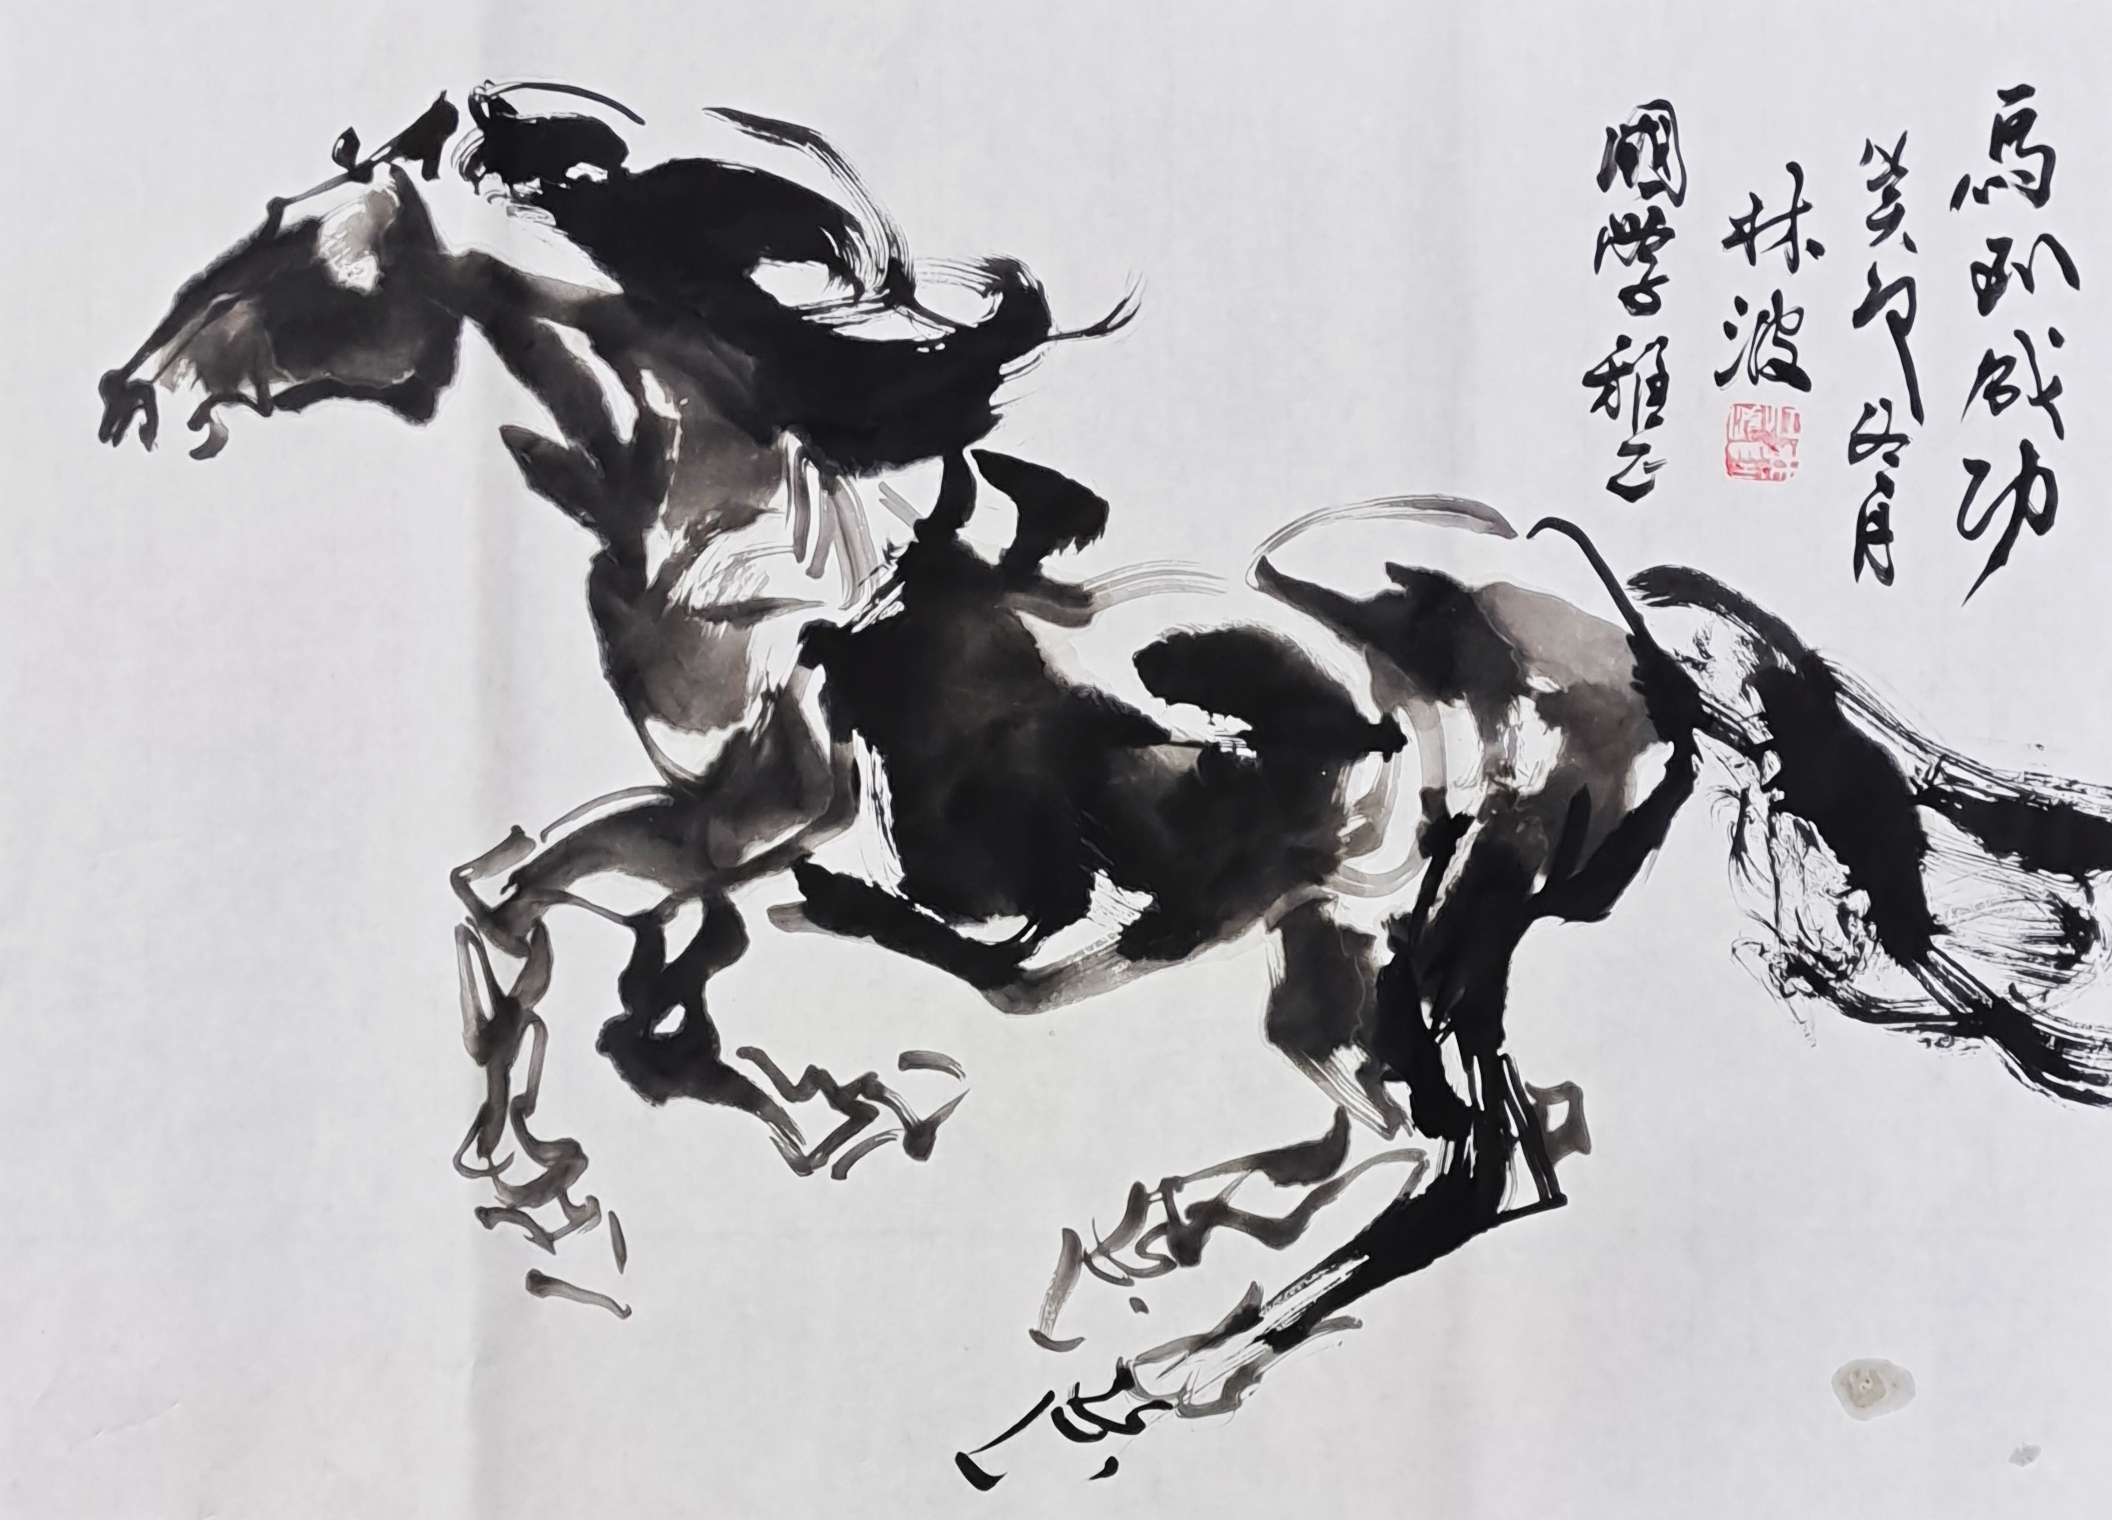 馬到成功
癸卯冬月
林波
國學雅正